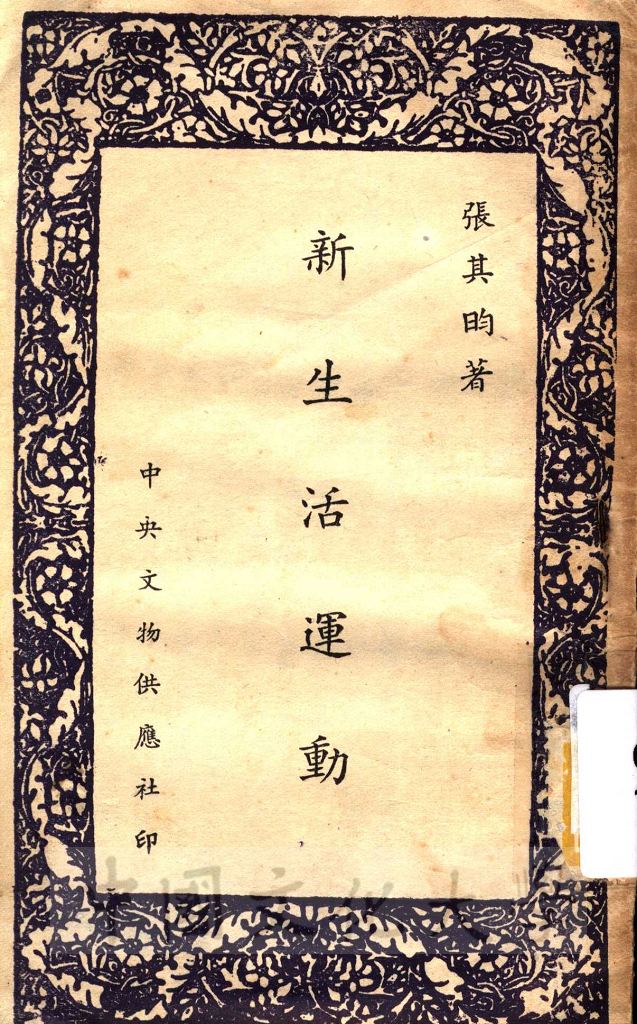 張其昀著
新生活運動
中央文物供應社印
中國文化大